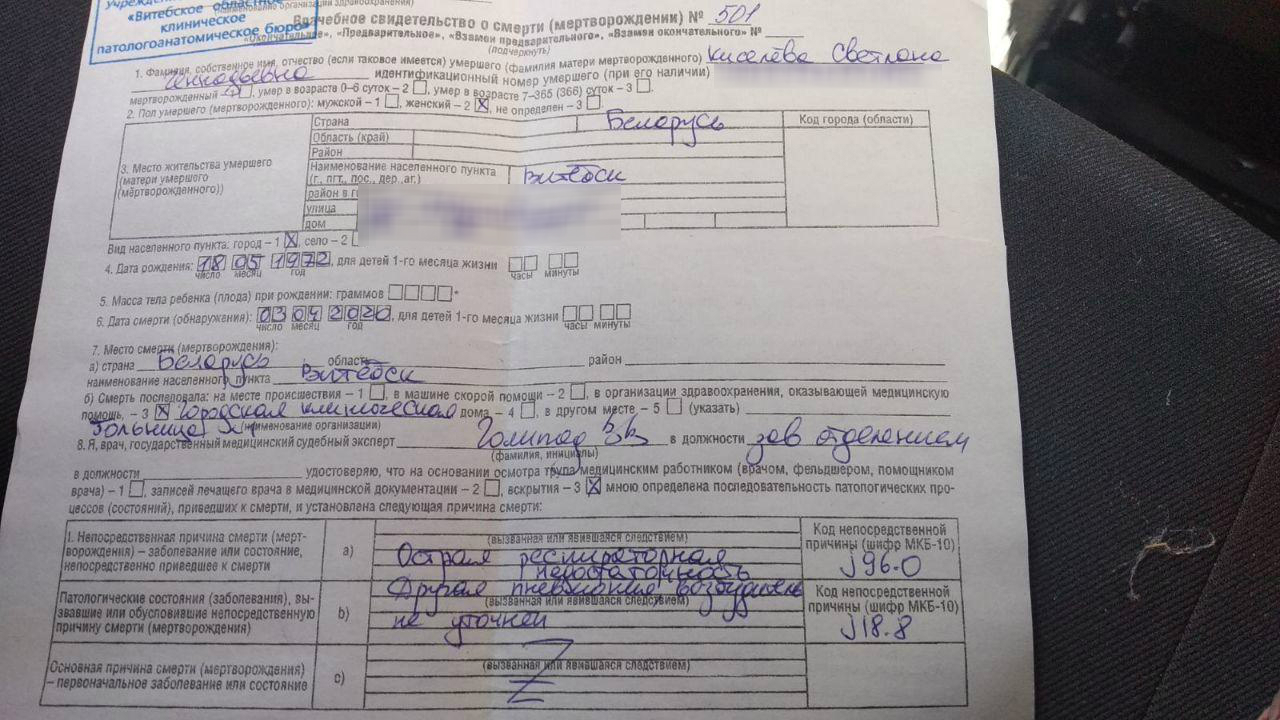 Учреждение
(наименование организации здравоохранения)
«Витебское областное
клиническое
патологоанатомическое бюро»
Врачебное свидетельство о смерти (мертворождении) № 501
«Окончательное», «Предварительное», «Взамен предварительного», «Взамен окончательного» №
(подчеркнуть)
1. Фамилия, собственное имя, отчество (если таковое имеется) умершего (фамилия матери мертворожденного) Киселёва Светлана
Геннадьевна идентификационный номер умершего (при его наличии)
мертворожденный – 1, умер в возрасте 0–6 суток – 2, умер в возрасте 7–365 (366) суток – 3.
2. Пол умершего (мертворожденного): мужской – 1, женский – 2 X, не определен – 3.
3. Место жительства умершего (матери умершего (мёртворожденного))
Страна Беларусь
Код города (области)
Область (край)
Район
Наименование населенного пункта (г., пгт., пос., дер., аг.) Витебск
район в г
улица
дом
Вид населенного пункта: город – 1 X, село – 2
4. Дата рождения: 18 05 1972, для детей 1-го месяца жизни
число месяц год часы минуты
5. Масса тела ребенка (плода) при рождении: граммов *
6. Дата смерти (обнаружения): 03 04 2020, для детей 1-го месяца жизни
число месяц год часы минуты
7. Место смерти (мертворождения):
а) страна Беларусь область район
наименование населенного пункта Витебск
б) Смерть последовала: на месте происшествия – 1, в машине скорой помощи – 2, в организации здравоохранения, оказывающей медицинскую
помощь, – 3 X Городская клиническая дома – 4, в другом месте – 5 (указать)
больница (наименование организации)
8. Я, врач, государственный медицинский судебный эксперт в должности зав отделением
(фамилия, инициалы)
в должности удостоверяю, что на основании осмотра трупа медицинским работником (врачом, фельдшером, помощником
врача) – 1, записей лечащего врача в медицинской документации – 2, вскрытия – 3 X мною определена последовательность патологических про-
цессов (состояний), приведших к смерти, и установлена следующая причина смерти:
I. Непосредственная причина смерти (мерт-
ворождения) – заболевание или состояние,
непосредственно приведшее к смерти
а)
(вызванная или явившаяся следствием)
Острая респираторная
недостаточность
Код непосредственной
причины (шифр МКБ-10)
J96.0
Патологические состояния (заболевания), вы-
звавшие или обусловившие непосредственную
причину смерти (мертворождения)
b)
Другая пневмония возбудитель
(вызванная или явившаяся следствием)
не уточнен
Код непосредственной
причины (шифр МКБ-10)
J18.8
Основная причина смерти (мертворождения)
– первоначальное заболевание или состояние
с)
(вызванная или явившаяся следствием)